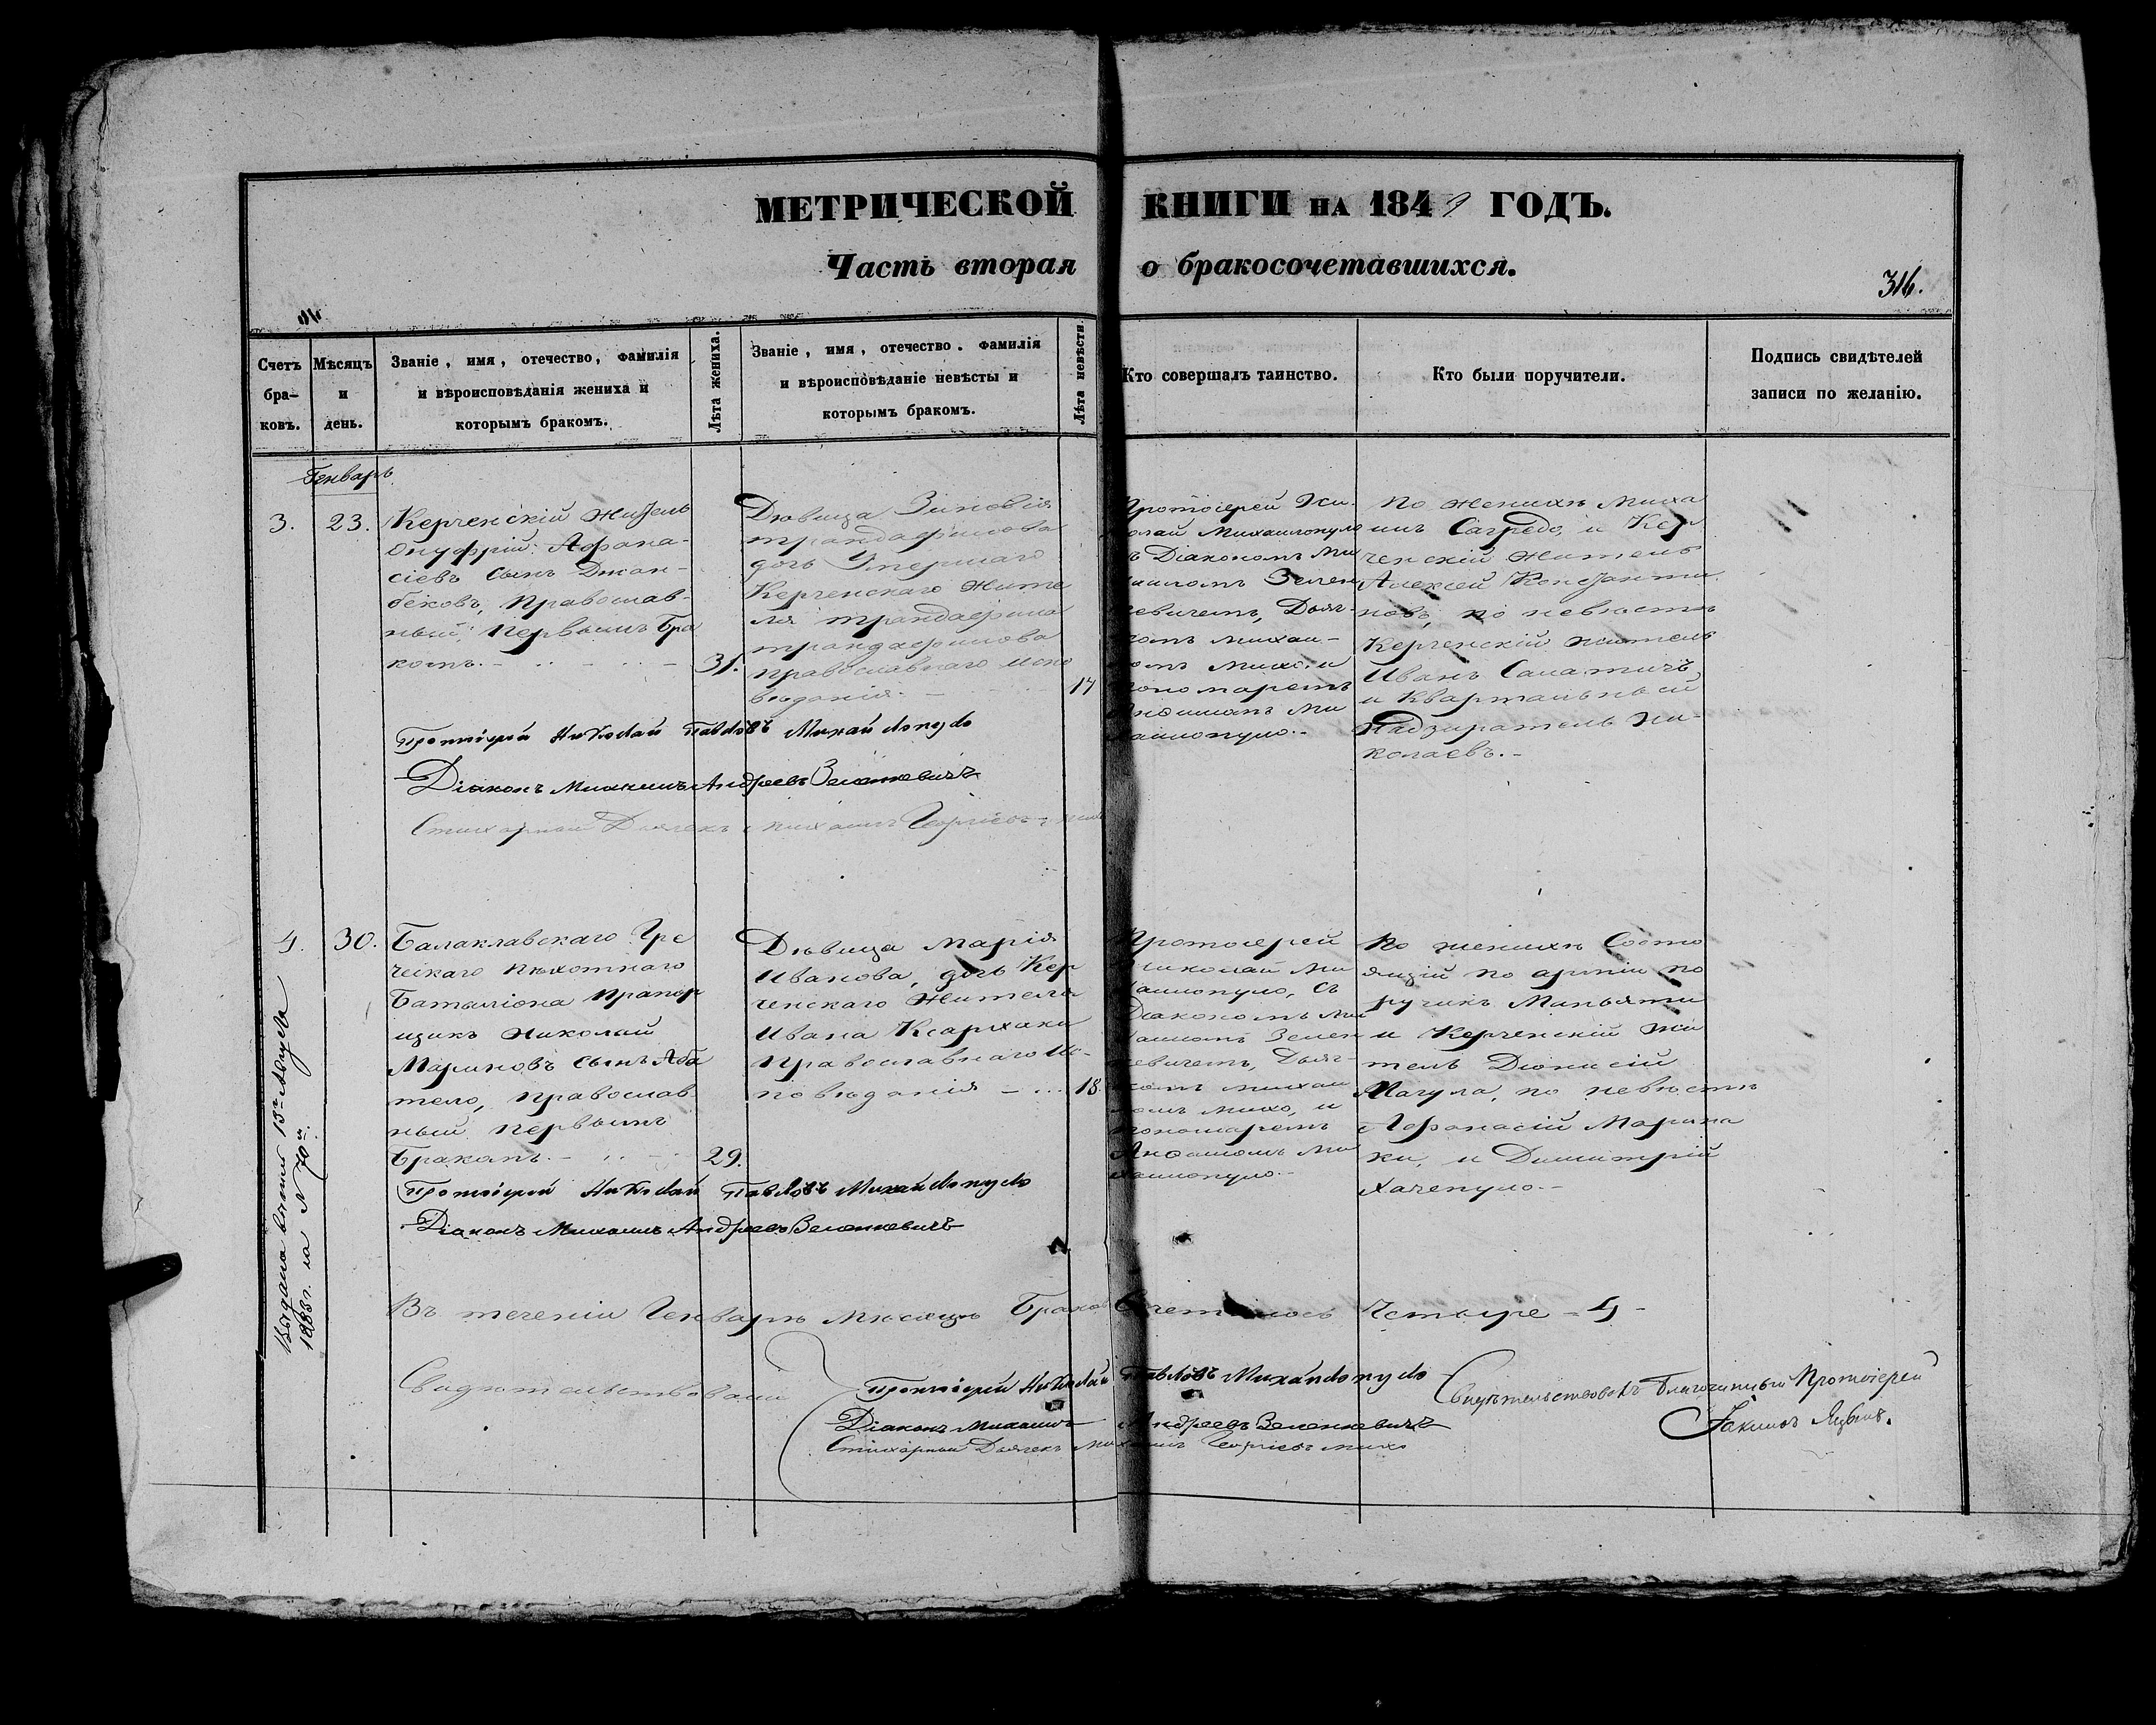 МЕТРИЧЕСКОЙ КНИГИ НА 1849 ГОДЪ.
Часть вторая о бракосочетавшихся.
316.
Счетъ бра- ковъ.
Мѣсяцъ и день.
Званіе, имя, отечество, фамилія
и вѣроисповѣданія жениха и
которымъ бракомъ.
Лѣта жениха.
Званіе, имя, отечество. фамилія
и вѣроисповѣданіе невѣсты и
которымъ бракомъ.
Лѣта невѣсты.
Кто совершалъ таинство.
Кто были поручители.
Подпись свидѣтелей
записи по желанію.
Генварь
3.
23.
Керченскій житель
Онуфрій Афана-
сіевъ сынъ Джан-
бековъ, Православ-
ный, первымъ бра
комъ.
31.
Дѣвица Зиновія
Трандафилова
дочь Умершаго
Керченскаго жите
ля Трандафила
Трандафилова
православнаго испо
вѣданія.
17
Протоіерей Ни-
олай Михаилопуло
ъ Діакономъ Ми
аиломъ Зелен
евичемъ, Дьяч-
комъ Михаи-
омъ Михо, и
ономаремъ
Михаилопуло.
По женихѣ Миха
илъ Сагредо, и Кер
ченскій житель
Алексей Константи
новъ, по невѣстѣ
Керченскій житель
Иванъ Саматичъ,
и Квартальный
Надзиратель Ни-
колаевъ.
Протоіерей Николай Павловъ Михайлопуло
Діаконъ Михаилъ Андреевъ Зеленкевичъ
Стихарный Дьячекъ Михаилъ Георгіевъ Михо
4.
30.
Балаклавскаго Гре
ческаго пѣхотнаго
Баталіона Прапор
щикъ Николай
Мариновъ сынъ Аба
тело, православ
ный первымъ
бракомъ.
29.
Дѣвица Марія
Иванова, дочь Кер
ченскаго жителя
Ивана Ксархаки
Православнаго Ис-
повѣданія
18.
Протоіерей
Николай Ми
хаилопуло, съ
Діакономъ Ми
хаиломъ Зелен
кевичемъ, Дьяч-
комъ Михаи
ломъ Михо, и
пономаремъ
Ми
хаилопуло.
По женихѣ Состо
ящій по арміи по
ручикъ Маньяти
и Керченскій жи
тель Діонисій
Пачула, по невѣстѣ
Афанасій Марина
ки, и Димитрій
Хачепуло.
Протоіерей Николай Павловъ Михайлопуло
Діаконъ Михаилъ Андреевъ Зеленкевичъ
Выдана копія 13го Августа
1888 г. на N 70й.
Въ теченіи Генварѣ мѣсяцѣ Браковъ четыре - 4 -
Свидѣтельствовали
Протоіерей Николай Павловъ Михайлопуло
Діаконъ Михаилъ Андреевъ Зеленкевичъ
Стихарный Дьячекъ Михаилъ Георгіевъ Михо
Свидѣтельствовалъ Благочинный Протоіерей